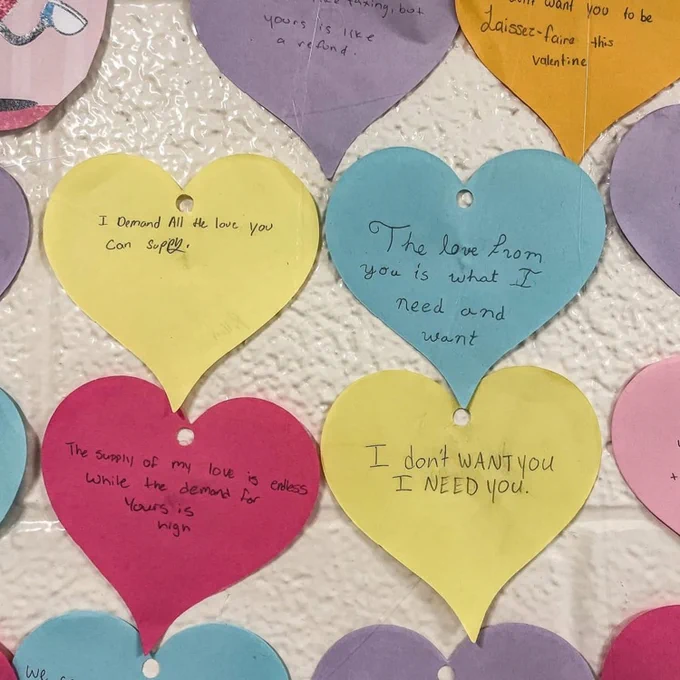 taxing, but
yours is like
a refund.
want you to be
Laissez-faire this
valentine
I Demand All the love you
Can Supply.
The love from
you is what I
need and
want
The supply of my love is endless
While the demand for
Yours is
high
I don't WANT you
I NEED you.
We